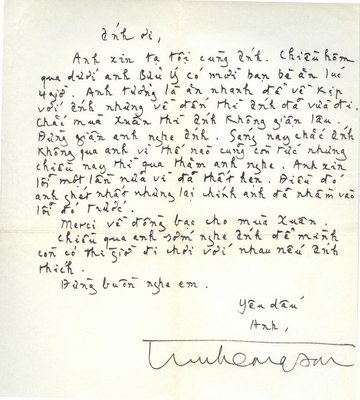 Ánh ơi,
Anh xin tạ tội cùng Ánh. Chiều hôm
qua dưới anh Bửu Ý có mời bạn bè ăn lúc
4 giờ. Anh tưởng là ăn nhanh để về kịp
với Ánh nhưng về đến thì Ánh đã vừa đi.
Chắc mùa Xuân thì Ánh không giận lâu.
Đừng giận anh nghe Ánh. Sáng nay chắc Ánh
không qua anh vì thế nào cũng còn tức nhưng
chiều nay thì qua thăm anh nghe. Anh xin
lỗi một lần nữa vì đã thất hẹn. Điều đó
anh ghét nhất nhưng lại chính anh đã nhằm vào
lỗi đó trước.
Merci về đồng bạc cho mùa Xuân.
Chiều qua anh sớm nghe Ánh để mình
còn có thì giờ đi chơi với nhau nếu Ánh
thích.
Đừng buồn nghe em.
Yêu dấu
Anh,
Trinhcongson